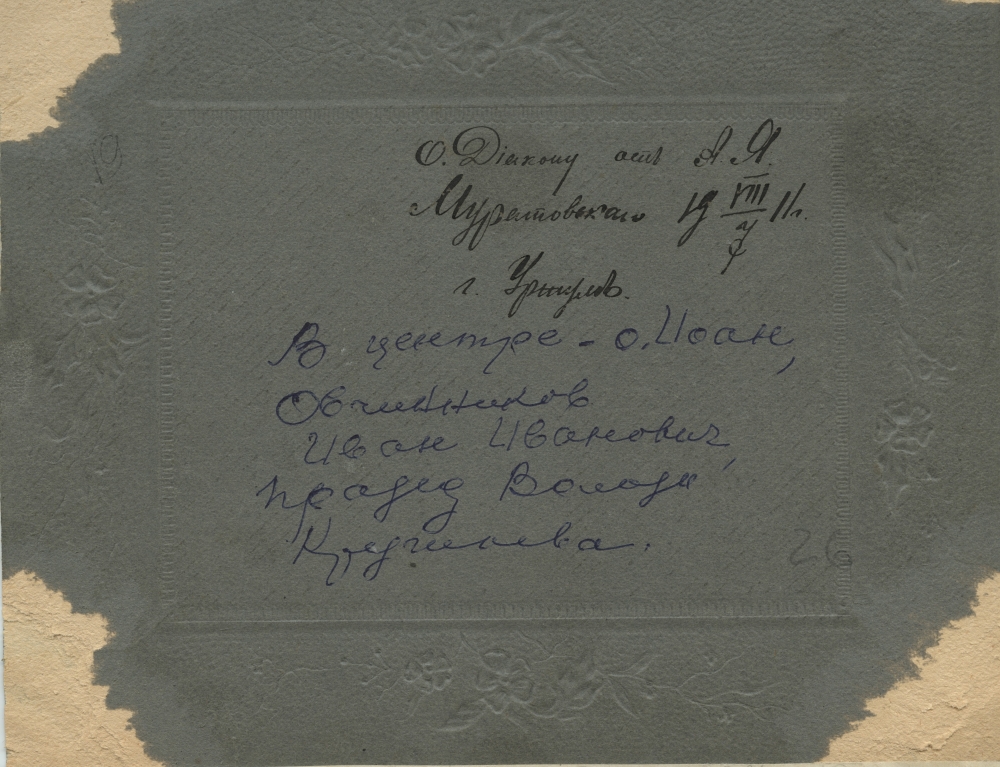 О. Діакону отъ А. Я.
Муратовскаго 19 VIII/7 11 г.
г.
В центре - о. Иоан,
Овчинников
Иван Иванович,
прадед Володи
Кручинева.
26